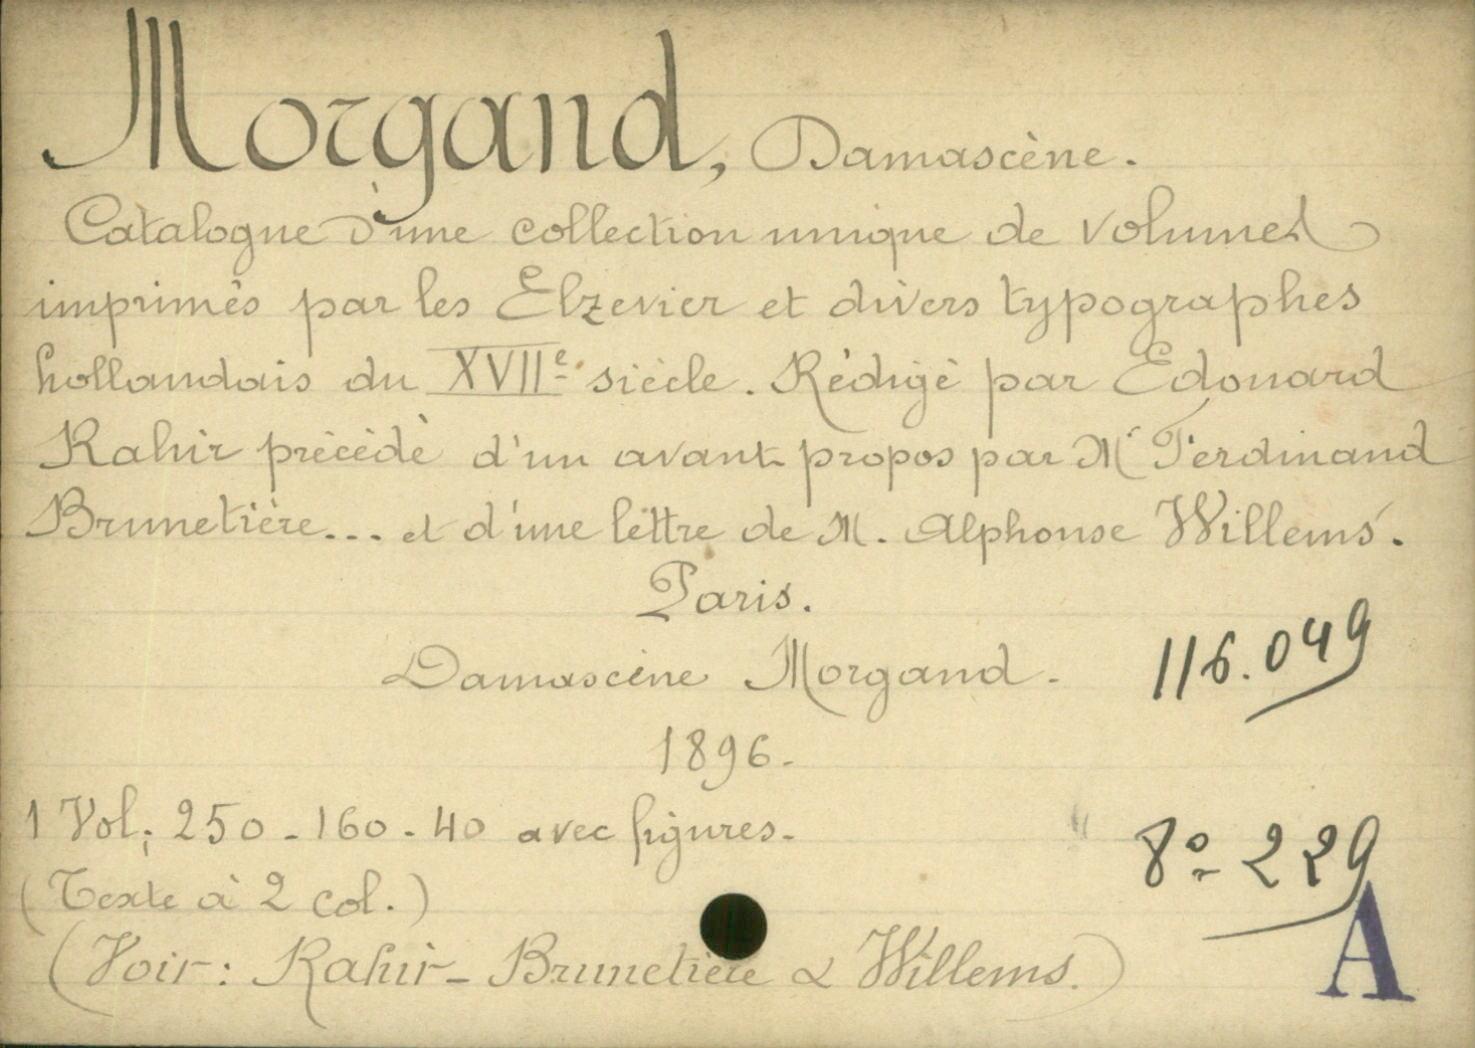 Morgand, Damascène.
Catalogue d'une collection unique de volumes
imprimés par les Elzevier et divers typographes
hollandais du XVIIe siècle. Rédigé par Edouard
Rahir précédé d'un avant propos par Mr Ferdinand
Brunetière... et d'une lettre de M. Alphonse Willems.
Paris.
Damascène Morgand.
116.049
1896.
1 Vol; 250-160-40 avec figures.
8o- 229
(Texte à 2 col.)
A
(Voir: Rahir- Brunetière & Willems.)